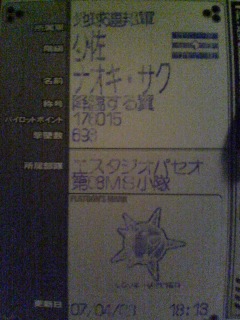 所属軍 地球連邦軍
階級 少佐
名前 ナオキ・サク
称号
パイロットポイント 178015
撃墜数 693
所属部隊 エスタジオパセオ
第08MS小隊
更新日 07/04/08 18:13